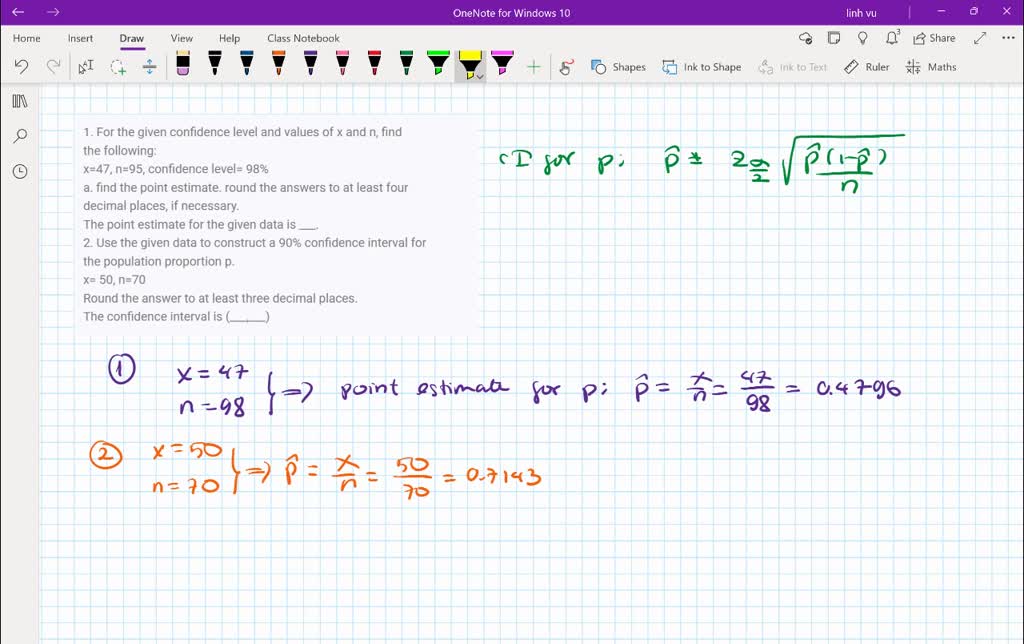 OneNote for Windows 10
linh vu
Home Insert Draw View Help Class Notebook
3
Share
Shapes Ink to Shape Ink to Text Ruler Maths
1. For the given confidence level and values of x and n, find
the following:
x=47, n=95, confidence level= 98%
a. find the point estimate. round the answers to at least four
decimal places, if necessary.
The point estimate for the given data is ___.
2. Use the given data to construct a 90% confidence interval for
the population proportion p.
x= 50, n=70
Round the answer to at least three decimal places.
The confidence interval is (___,___)
CI for p: p̂ ± z α/2 √(p̂(1-p̂)/n)
① x = 47
n = 98 } => point estimate for p: p̂ = x/n = 47/98 = 0.4796
② x = 50
n = 70 } => p̂ = x/n = 50/70 = 0.7143